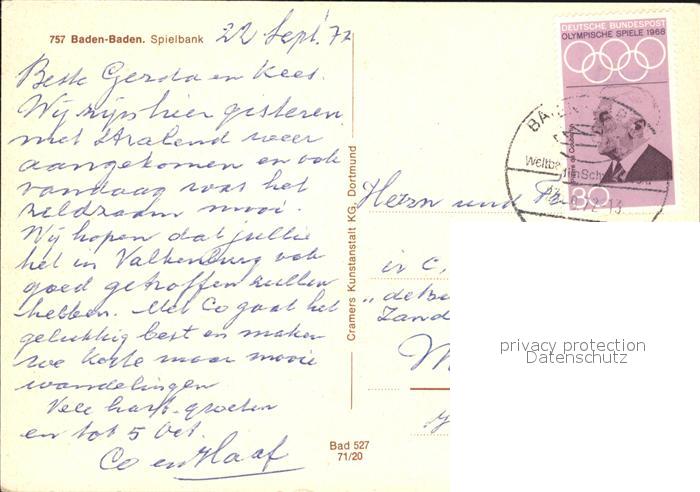 757 Baden-Baden. Spielbank
22 Sept. 72
Beste Gerda en Kees.
Wij zijn hier gisteren
met stralend weer
aangekomen en ook
vandaag was het
zeldzaam mooi.
Wij hopen dat jullie
het in Valkenburg ook
goed getroffen zullen
hebben. Met Co gaat het
gelukkig best en maken
we korte maar mooie
wandelingen
Vele hart. groeten
en tot 5 Oct.
Co en
Cramers Kunstanstalt KG, Dortmund
Bad 527
71/20
DEUTSCHE BUNDESPOST
OLYMPISCHE SPIELE 1968
30
BADEN-BADEN
Herrn und
"de
Zand
privacy protection
Datenschutz